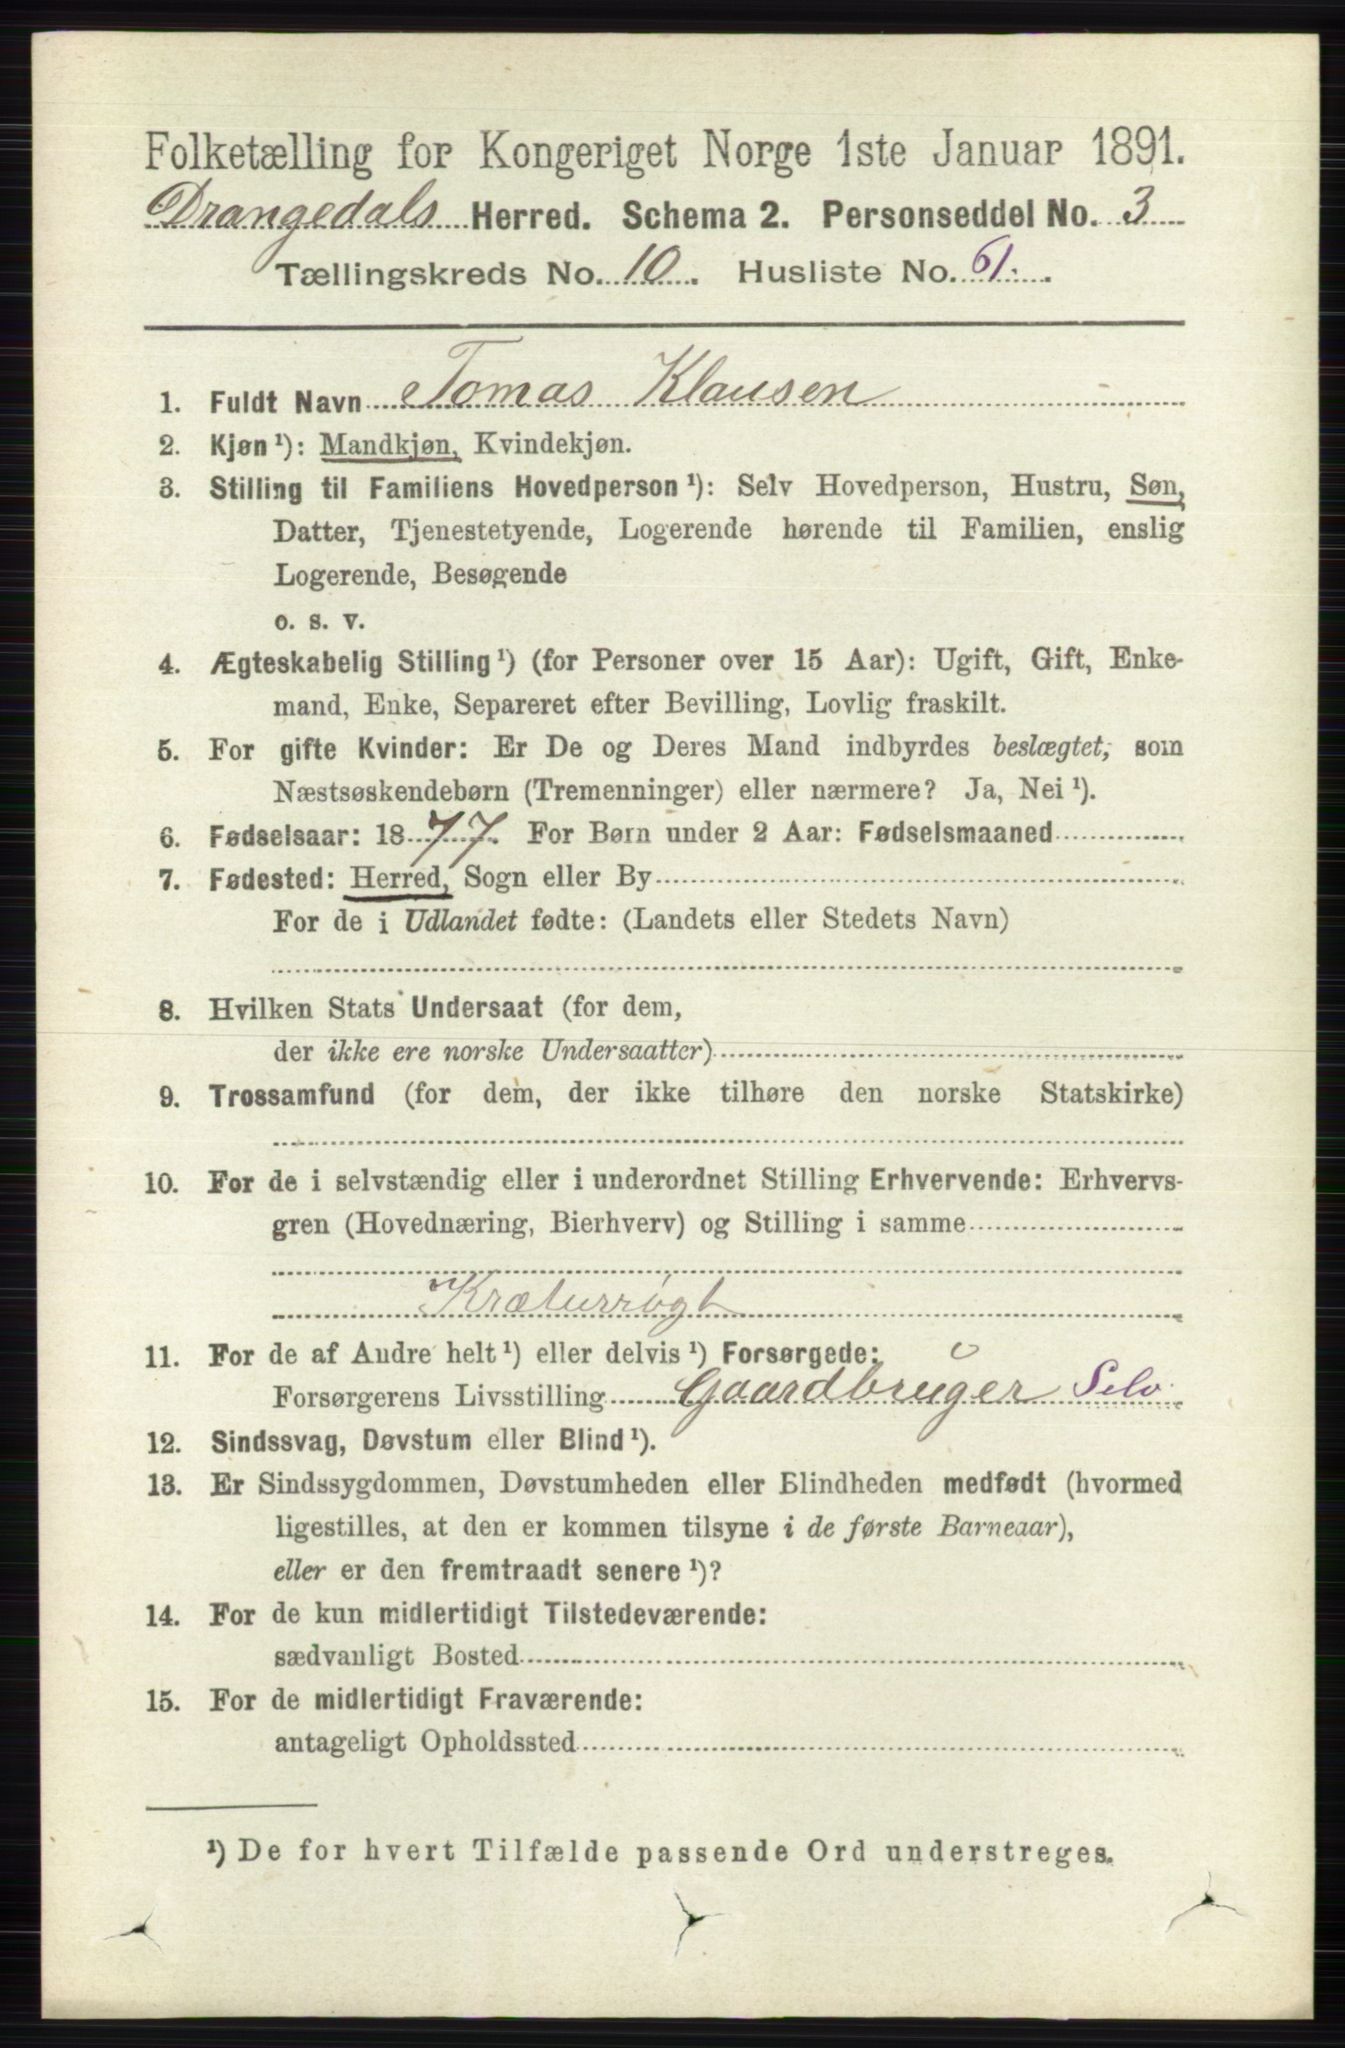 Folketælling for Kongeriget Norge 1ste Januar 1891.
Drangedals Herred. Schema 2. Personseddel No. 3
Tællingskreds No. 10. Husliste No. 61.
1. Fuldt Navn Tomas Klausen
2. Kjøn¹): Mandkjøn, Kvindekjøn.
3. Stilling til Familiens Hovedperson¹): Selv Hovedperson, Hustru, Søn,
Datter, Tjenestetyende, Logerende hørende til Familien, enslig
Logerende, Besøgende
o. s. v.
4. Ægteskabelig Stilling¹) (for Personer over 15 Aar): Ugift, Gift, Enke-
mand, Enke, Separeret efter Bevilling, Lovlig fraskilt.
5. For gifte Kvinder: Er De og Deres Mand indbyrdes beslægtet, som
Næstsøskendebørn (Tremenninger) eller nærmere? Ja, Nei¹).
6. Fødselsaar: 1877. For Børn under 2 Aar: Fødselsmaaned
7. Fødested: Herred, Sogn eller By
For de i Udlandet fødte: (Landets eller Stedets Navn)
8. Hvilken Stats Undersaat (for dem,
der ikke ere norske Undersaatter)
9. Trossamfund (for dem, der ikke tilhøre den norske Statskirke)
10. For de i selvstændig eller i underordnet Stilling Erhvervende: Erhvervs-
gren (Hovednæring, Bierhverv) og Stilling i samme
Kræturrøgt
11. For de af Andre helt¹) eller delvis¹) Forsørgede:
Forsørgerens Livsstilling Gaardbruger Selv
12. Sindssvag, Døvstum eller Blind¹).
13. Er Sindssygdommen, Døvstumheden eller Blindheden medfødt (hvormed
ligestilles, at den er kommen tilsyne i de første Barneaar),
eller er den fremtraadt senere¹)?
14. For de kun midlertidigt Tilstedeværende:
sædvanligt Bosted
15. For de midlertidigt Fraværende:
antageligt Opholdssted
¹) De for hvert Tilfælde passende Ord understreges.